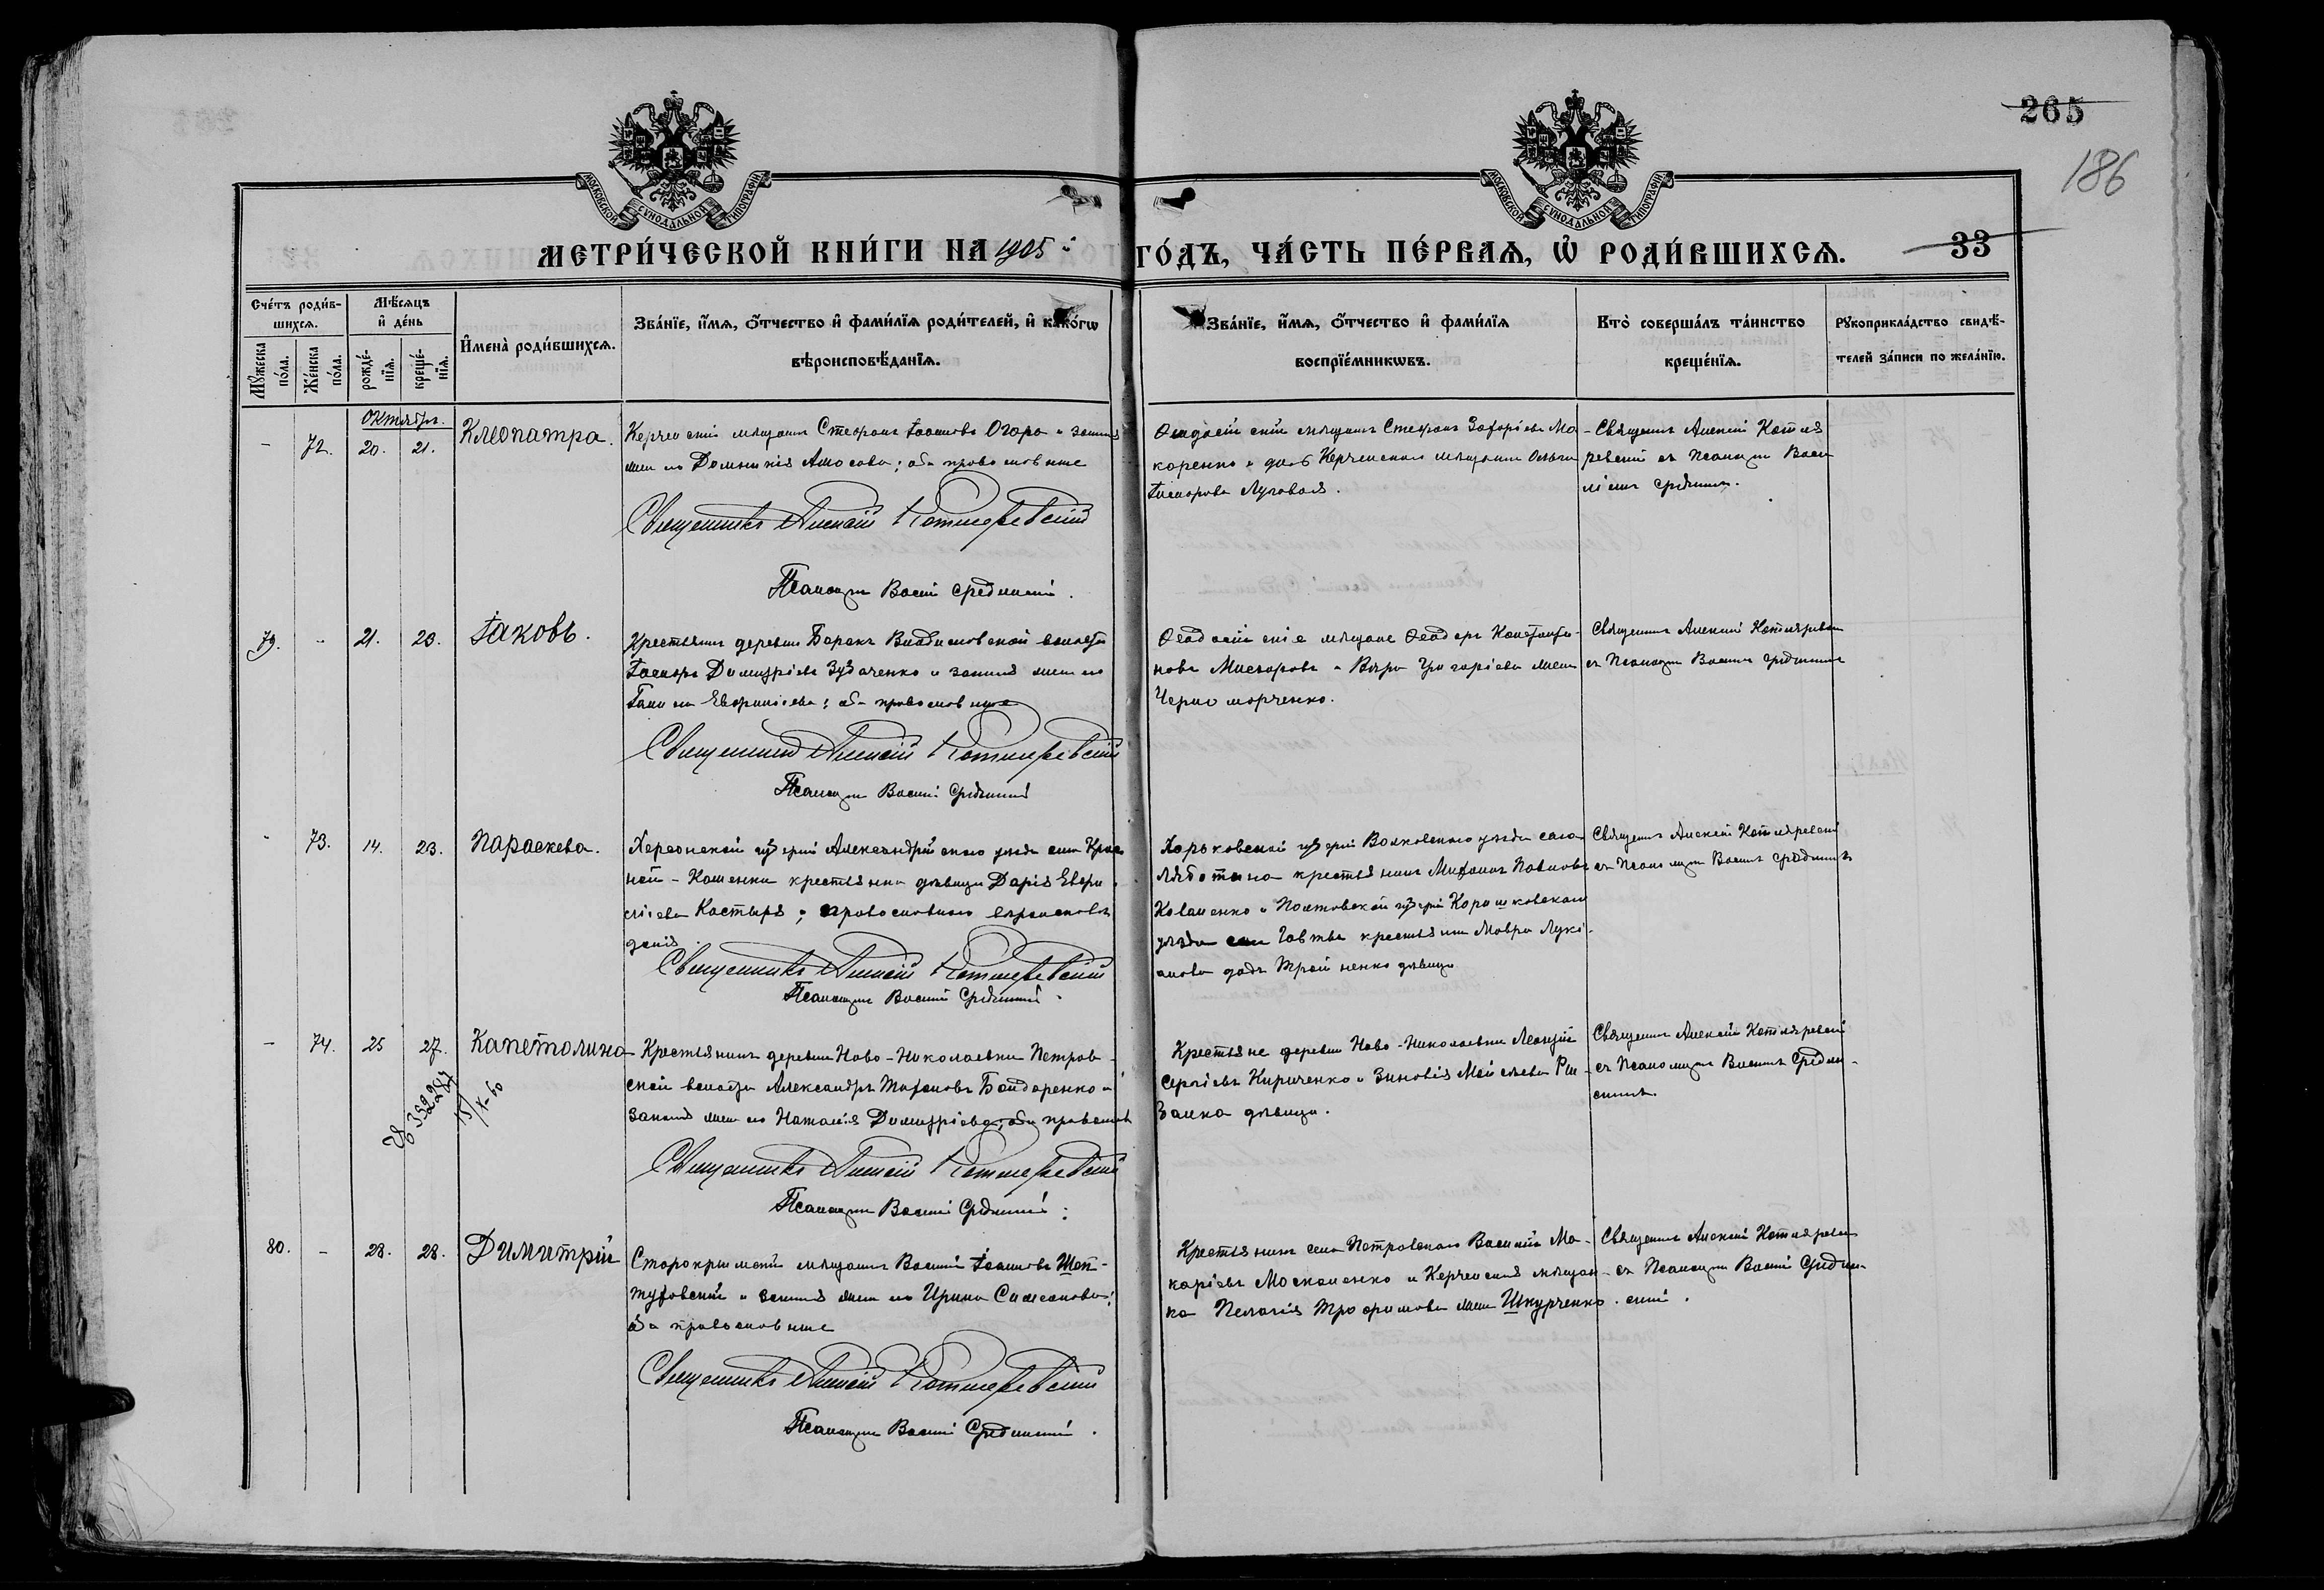 265
186
МОСКОВСКОЙ СѴНОДАЛЬНОЙ ТИПОГРАФІИ
МОСКОВСКОЙ СѴНОДАЛЬНОЙ ТИПОГРАФІИ
МЕТРИ́ЧЕСКОЙ КНИ́ГИ НА 1905 й ГО́ДЪ, ЧА́СТЬ ПЕ́РВАѦ, Ѡ҆ РОДИ́ВШИХСѦ. 33
Сче́тъ роди́в-
шихсѧ.
Мꙋ́жеска
по́ла.
Же́нска
по́ла.
Мѣ́сѧцъ
и҆ де́нь
рожде́-
нїѧ.
креще́-
нїѧ.
И҆мена̀ роди́вшихсѧ.
Зва́нїе, и҆́мѧ, ѻ҆́тчество и҆ фами́лїѧ роди́телей, и҆ како́гѡ
вѣроисповѣ́данїѧ.
Зва́нїе, и҆́мѧ, ѻ҆́тчество и҆ фами́лїѧ
воспрїе́мникѡвъ.
Кто̀ соверша́лъ та́инство
креще́нїѧ.
Рꙋкоприкла́дство свидѣ́-
телей за́писи по жела́нїю.
Октябрь.
- 72. 20. 21. Клеопатра.
Керченскій мѣщанинъ Стефанъ Іоанновъ Огарь и законная
жена его Домникія Амосова; оба православные
Священникъ Алексій Котляревскій
Псаломщикъ Василій Срединскій.
Ѳеодосійскій мѣщанинъ Стефанъ Захаріевъ Ма-
каренко и дочь Керченскаго мѣщанина Ольга
Іаковова Луговая.
Священникъ Алексій Котля
ревскій съ Псаломщ Васи
ліемъ Средним.
79. - 21. 23. Іаковъ.
Крестьянинъ деревни Баракъ Владиславской волости
Іаковъ Димитріевъ Зубаченко и законная жена его
Евфиміева; оба православные
Священникъ Алексій Котляревскій
Псаломщикъ Василій Срединскій
Ѳеодосійскіе мѣщане Ѳеодоръ Константи-
новъ и Вѣра Григоріева жена
Черноморченко.
Священникъ Алексій Котляревскій
съ Псаломщ Василіемъ Срединским
- 73. 14. 23. Параскева.
Херсонской губерніи Александрійскаго уѣзда села Крас
ной-Каменки крестьянка дѣвица Дарія Евфи
міева Костыря; православнаго вѣроисповѣ
данія.
Священникъ Алексій Котляревскій
Псаломщикъ Василій Срединскій.
Харьковской губерніи Валковскаго уѣзда села
Люботина крестьянинъ Михаилъ Павловъ
Коваленко и Полтавской губерніи
уѣзда села Говтвы крестьянина Мавра Луки-
анова дочь Тройненко дѣвица
Священникъ Алексій Котляревскій
съ Псаломщ Василіемъ Срединскимъ
- 74. 25 27. Капетолина
392284
Крестьянинъ деревни Ново-Николаевки Петров-
ской волости Александръ Бондаренко и
законная жена его Наталія Димитріева; оба православн
Священникъ Алексій Котляревскій
Псаломщикъ Василій Срединскій.
Крестьяне деревни Ново-Николаевки Леонтій
Сергіевъ Кириченко и Зиновія
дѣвица.
Священникъ Алексій Котляревскій
съ Псаломщ Василіемъ Средин-
скимъ.
80. - 28. 28. Димитрій
Старокрымскій мѣщанинъ Василій Іоанновъ Шеп-
туховскій и законная жена его Ирина Симеонова;
оба православные
Священникъ Алексій Котляревскій
Псаломщикъ Василій Срединскій.
Крестьянинъ села Петровскаго Василій Ма-
каріевъ Москаленко и Керченская мѣщан-
ка Пелагія Трофимова жена Шкурченко.
Священникъ Алексій Котляревск
съ Псаломщ Василій Средин-
скій.